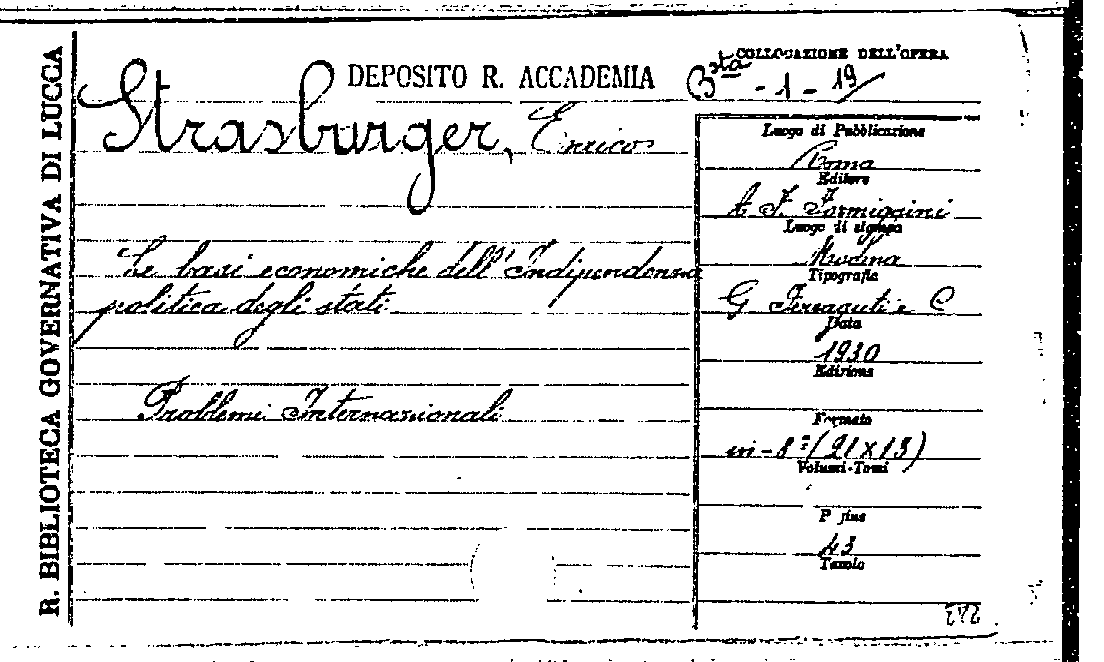 R. BIBLIOTECA GOVERNATIVA DI LUCCA
DEPOSITO R. ACCADEMIA
COLLOCAZIONE DELL'OPERA
Bta - 1 - 19
Strasburger, Enrico
Le basi economiche dell'Indipendenza
politica degli stati
Problemi Internazionali
Luogo di Pubblicazione
Roma
Editore
A. F. Formiggini
Luogo di stampa
Modena
Tipografia
G Ferraguti e C
Data
1930
Edizione
Formato
in-8° (21x13)
Volumi-Tomi
P fine
43
Tavole